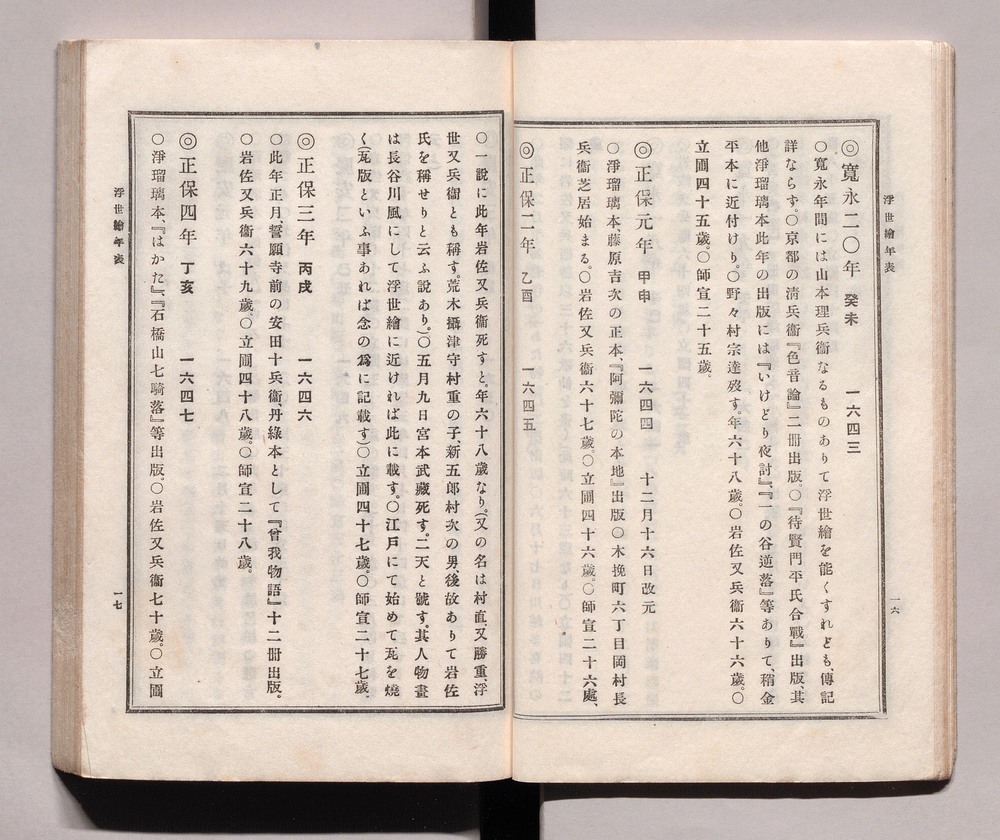 浮世繪年表
一六
◎寬永二〇年 癸未 一六四三
〇寬永年間には山本理兵衞なるものありて浮世繪を能くすれども、傳記
詳ならず。〇京都の淸兵衞『色音論』二冊出版。〇『待賢門平氏合戰』出版、其
他淨瑠璃本此年の出版には『いけどり夜討』、『一の谷逆落』等ありて、稍金
平本に近付けり。〇野々村宗達歿す。年六十八歲。〇岩佐又兵衞六十六歲。〇
立圃四十五歲。〇師宣二十五歲。
◎正保元年 甲申 一六四四 十二月十六日改元
〇淨瑠璃本、藤原吉次の正本、『阿彌陀の本地』出版〇木挽町六丁目岡村長
兵衞芝居始まる。〇岩佐又兵衞六十七歲。〇立圃四十六歲。〇師宣二十六處、
◎正保二年 乙酉 一六四五
〇一說に此年岩佐又兵衞死すと。年六十八歲なり。(又の名は村直、又勝重、浮
世又兵衞とも稱す。荒木攝津守村重の子新五郎村次の男、後故ありて岩佐
氏を稱せりと云ふ說あり。)〇五月九日宮本武藏死す。二天と號す。其人物畫
は長谷川風にして浮世繪に近ければ此に載す。〇江戶にて始めて瓦を燒
く(瓦版といふ事あれば念の爲に記載す)〇立圃四十七歲。〇師宣二十七歲、
◎正保三年 丙戌 一六四六
〇此年正月、誓願寺前の安田十兵衞、丹綠本として『曾我物語』十二冊出版。
〇岩佐又兵衞六十九歲。〇立圃四十八歲。〇師宣二十八歲。
◎正保四年 丁亥 一六四七
〇淨瑠璃本、『はかた』、『石橋山七騎落』等出版。〇岩佐又兵衞七十歲。〇立圃
浮世繪年表
一七